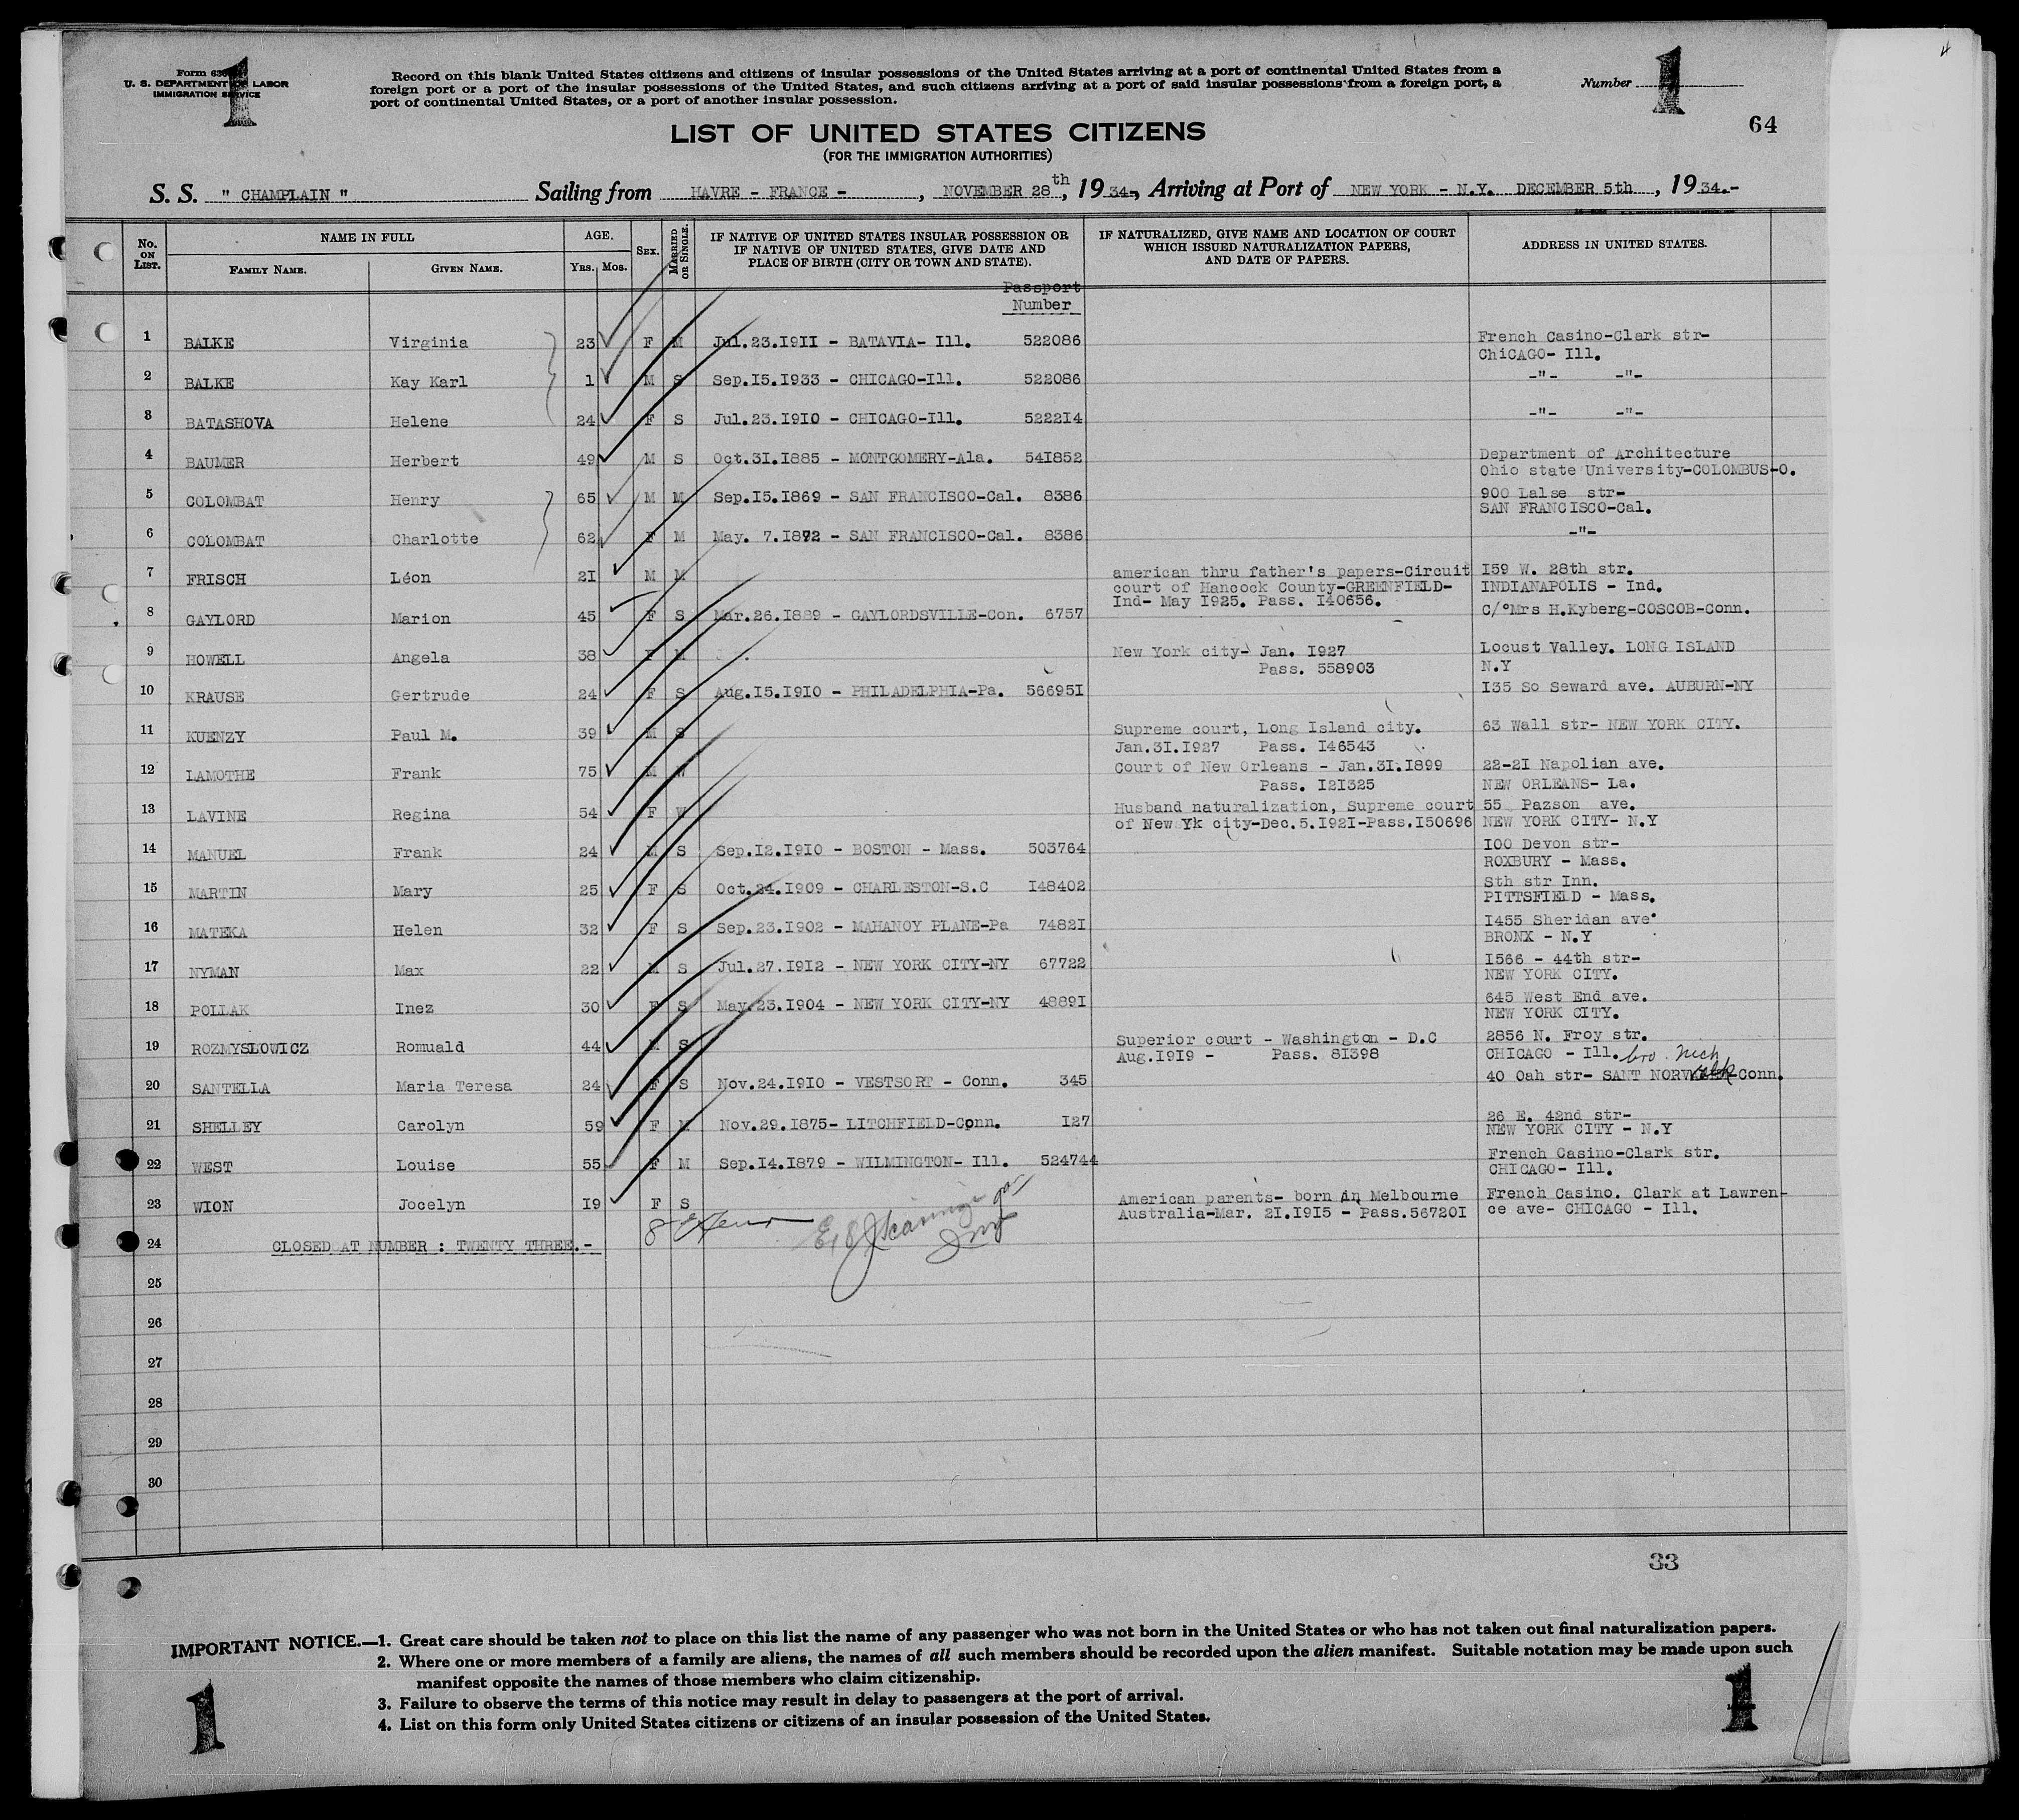 1
1
Form 630
U. S. DEPARTMENT OF LABOR
IMMIGRATION SERVICE
Record on this blank United States citizens and citizens of insular possessions of the United States arriving at a port of continental United States from a
foreign port or a port of the insular possessions of the United States, and such citizens arriving at a port of said insular possessions from a foreign port, a
port of continental United States, or a port of another insular possession.
Number
64
LIST OF UNITED STATES CITIZENS
(FOR THE IMMIGRATION AUTHORITIES)
S. S. " CHAMPLAIN " Sailing from HAVRE - FRANCE - , NOVEMBER 28th, 1934-, Arriving at Port of NEW YORK - N.Y. DECEMBER 5th , 1934.-
No. ON LIST. NAME IN FULL AGE. SEX. MARRIED OR SINGLE. IF NATIVE OF UNITED STATES INSULAR POSSESSION OR IF NATIVE OF UNITED STATES, GIVE DATE AND PLACE OF BIRTH (CITY OR TOWN AND STATE). IF NATURALIZED, GIVE NAME AND LOCATION OF COURT WHICH ISSUED NATURALIZATION PAPERS, AND DATE OF PAPERS. ADDRESS IN UNITED STATES.
FAMILY NAME. GIVEN NAME. YRS. MOS.
Passport
Number
1 BALKE Virginia 23 F M Jul.23.I9II - BATAVIA- Ill. 522086 French Casino-Clark str-
ChiCAGO- Ill.
2 BALKE Kay Karl 1 M S Sep.I5.I933 - CHICAGO-Ill. 522086 -"- -"-
3 BATASHOVA Helene 24 F S Jul.23.I9I0 - CHICAGO-Ill. 5222I4 -"- -"-
4 BAUMER Herbert 49 M S Oct.3I.I885 - MONTGOMERY-Ala. 54I852 Department of Architecture
Ohio state University-COLOMBUS-O.
5 COLOMBAT Henry 65 M M Sep.I5.I869 - SAN FRANCISCO-Cal. 8386 900 Lalse str-
SAN FRANCISCO-Cal.
6 COLOMBAT Charlotte 62 F M May. 7.I872 - SAN FRANCISCO-Cal. 8386 -"-
7 FRISCH Léon 2I M M american thru father's papers-Circuit I59 W. 28th str.
court of Hancock County-GREENFIELD- INDIANAPOLIS - Ind.
Ind- May I925. Pass. I40656.
8 GAYLORD Marion 45 F S Mar.26.I889 - GAYLORDSVILLE-Con. 6757 C/°Mrs H.Kyberg-COSCOB-Conn.
9 HOWELL Angela 38 F M New York city- Jan. I927 Locust Valley. LONG ISLAND
Pass. 558903 N.Y
10 KRAUSE Gertrude 24 F S Aug.I5.I9I0 - PHILADELPHIA-Pa. 56695I I35 So Seward ave. AUBURN-NY
11 KUENZY Paul M. 39 M S Supreme court, Long Island city. 63 Wall str- NEW YORK CITY.
Jan.3I.I927 Pass. I46543
12 LAMOTHE Frank 75 M W Court of New Orleans - Jan.3I.I899 22-2I Napolian ave.
Pass. I2I325 NEW ORLEANS- La.
13 LAVINE Regina 54 F W Husband naturalization, Supreme court 55 Pazson ave.
of New Yk city-Dec.5.I92I-Pass.I50696 NEW YORK CITY- N.Y
14 MANUEL Frank 24 M S Sep.I2.I9I0 - BOSTON - Mass. 503764 I00 Devon str-
ROXBURY - Mass.
15 MARTIN Mary 25 F S Oct.24.I909 - CHARLESTON-S.C I48402 Sth str Inn.
PITTSFIELD - Mass.
16 MATEKA Helen 32 F S Sep.23.I902 - MAHANOY PLANE-Pa 7482I I455 Sheridan ave.
BRONX - N.Y
17 NYMAN Max 22 M S Jul.27.I9I2 - NEW YORK CITY-NY 67722 I566 - 44th str-
NEW YORK CITY.
18 POLLAK Inez 30 F S May.23.I904 - NEW YORK CITY-NY 4889I 645 West End ave.
NEW YORK CITY.
19 ROZMYSLOWICZ Romuald 44 M S Superior court - Washington - D.C 2856 N. Froy str.
Aug.I9I9 - Pass. 8I398 CHICAGO - Ill.
20 SANTELLA Maria Teresa 24 F S Nov.24.I9I0 - VESTSORT - Conn. 345 40 Oah str- SANT NORWalk-Conn.
21 SHELLEY Carolyn 59 F M Nov.29.I875- LITCHFIELD-Conn. I27 26 E. 42nd str-
NEW YORK CITY - N.Y
22 WEST Louise 55 F M Sep.I4.I879 - WILMINGTON- Ill. 524744 French Casino-Clark str.
CHICAGO- Ill.
23 WION Jocelyn I9 F S American parents- born in Melbourne French Casino. Clark at Lawren-
Australia-Mar. 2I.I9I5 - Pass.56720I ce ave- CHICAGO - Ill.
24 CLOSED AT NUMBER : TWENTY THREE.-
25
26
27
28
29
30
33
IMPORTANT NOTICE.—1. Great care should be taken not to place on this list the name of any passenger who was not born in the United States or who has not taken out final naturalization papers.
2. Where one or more members of a family are aliens, the names of all such members should be recorded upon the alien manifest. Suitable notation may be made upon such
manifest opposite the names of those members who claim citizenship.
3. Failure to observe the terms of this notice may result in delay to passengers at the port of arrival.
4. List on this form only United States citizens or citizens of an insular possession of the United States.
1
1